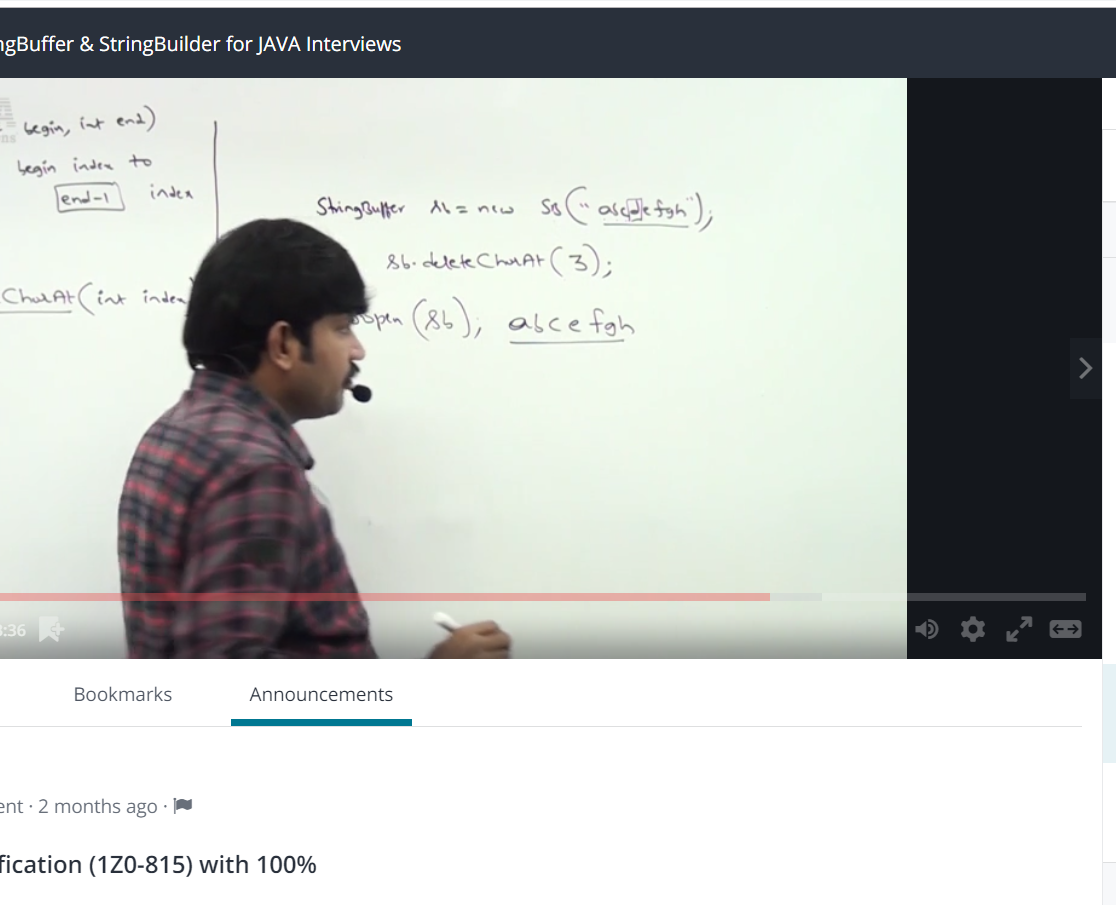 ngBuffer & StringBuilder for JAVA Interviews
begin, int end)
begin index to
end-1 index
CharAt(int index
StringBuffer sb = new SB("abcdefgh");
sb.deleteCharAt(3);
sopln(sb); abcefgh
:36
Bookmarks
Announcements
ent · 2 months ago ·
fication (1Z0-815) with 100%